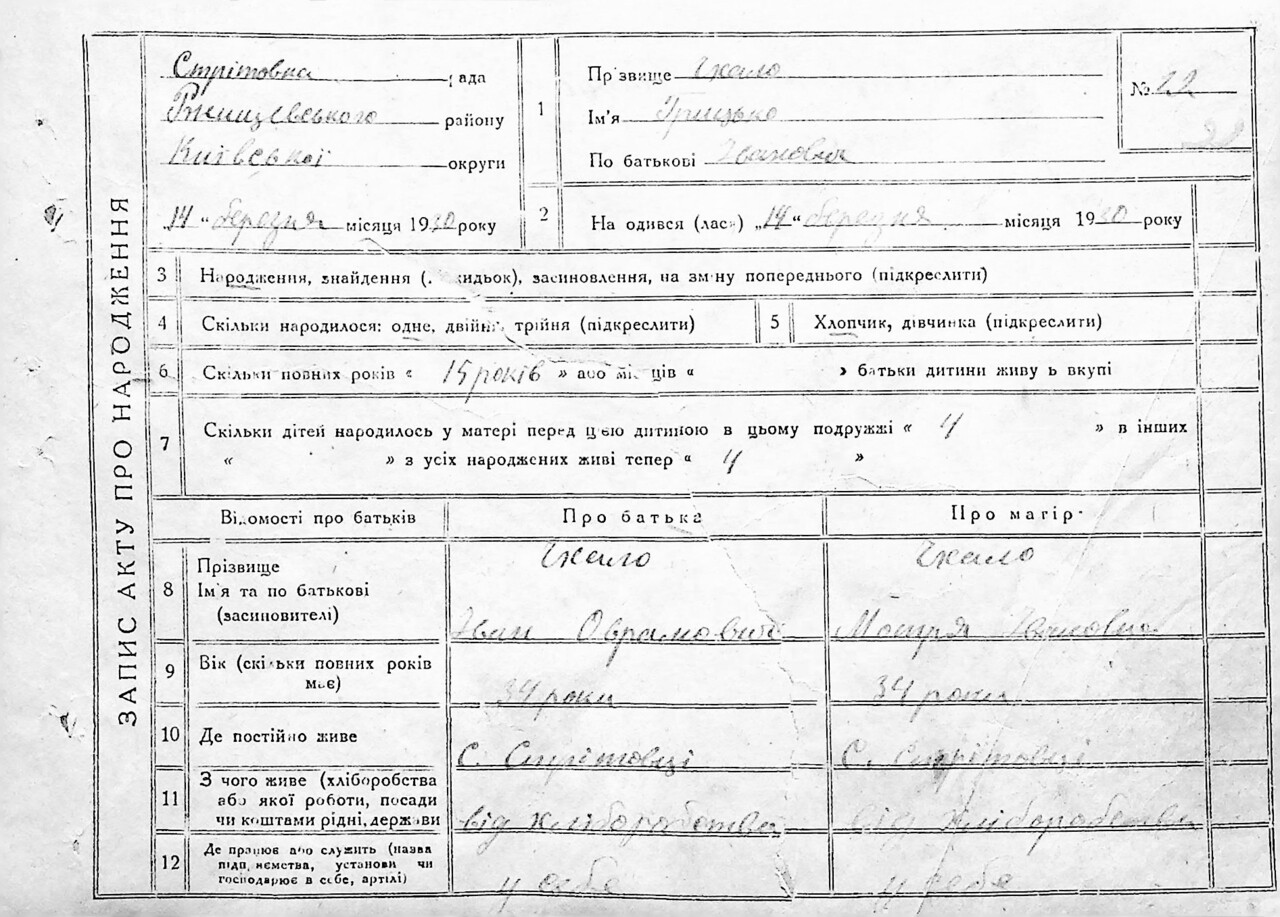 ЗАПИС АКТУ ПРО НАРОДЖЕННЯ
Стрітовка рада
Ржищевського району
Київської округи
„14“ березня місяця 1930 року
1 Прізвище Чхало
Ім'я Грицько
По батькові Іванович
№ 22
2 На одився (лась) „14“ березня місяця 1930 року
3 Народження, знайдення ( идьок), засиновлення, на зміну попереднього (підкреслити)
4 Скільки народилося: одне, двійні, трійня (підкреслити)
5 Хлопчик, дівчинка (підкреслити)
6 Скільки повних років « 15 років » або мі ців « » батьки дитини живу ь вкупі
7 Скільки дітей народилось у матері перед цією дитиною в цьому подружжі « 4 » в інших
« » з усіх народжених живі тепер « 4 »
Відомості про батьків Про батька Про матір
8 Прізвище
Ім'я та по батькові
(засиновителі)
Чхало
Іван Оврамович
Чхало
Мотря Івановна
9 Вік (скільки повних років
має)
34 роки
34 роки
10 Де постійно живе
С. Стрітовці
С. Стрітовці
11 З чого живе (хліборобства
або якої роботи, посади
чи коштами рідні, держави
від хліборобства
від хліборобства
12 Де працює або служить (назва
підп иємства, установи чи
господарює в себе, артілі)
у себе
у себе